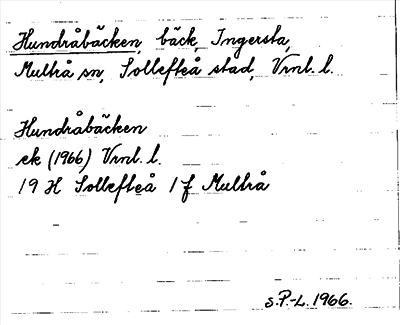 Hundråbäcken, bäck, Ingersta,
Multrå sn, Sollefteå stad, Vrnl. l.
Hundråbäcken
ek (1966) Vrnl. l.
19 H Sollefteå 1 f Multrå
s.P.-L. 1966.